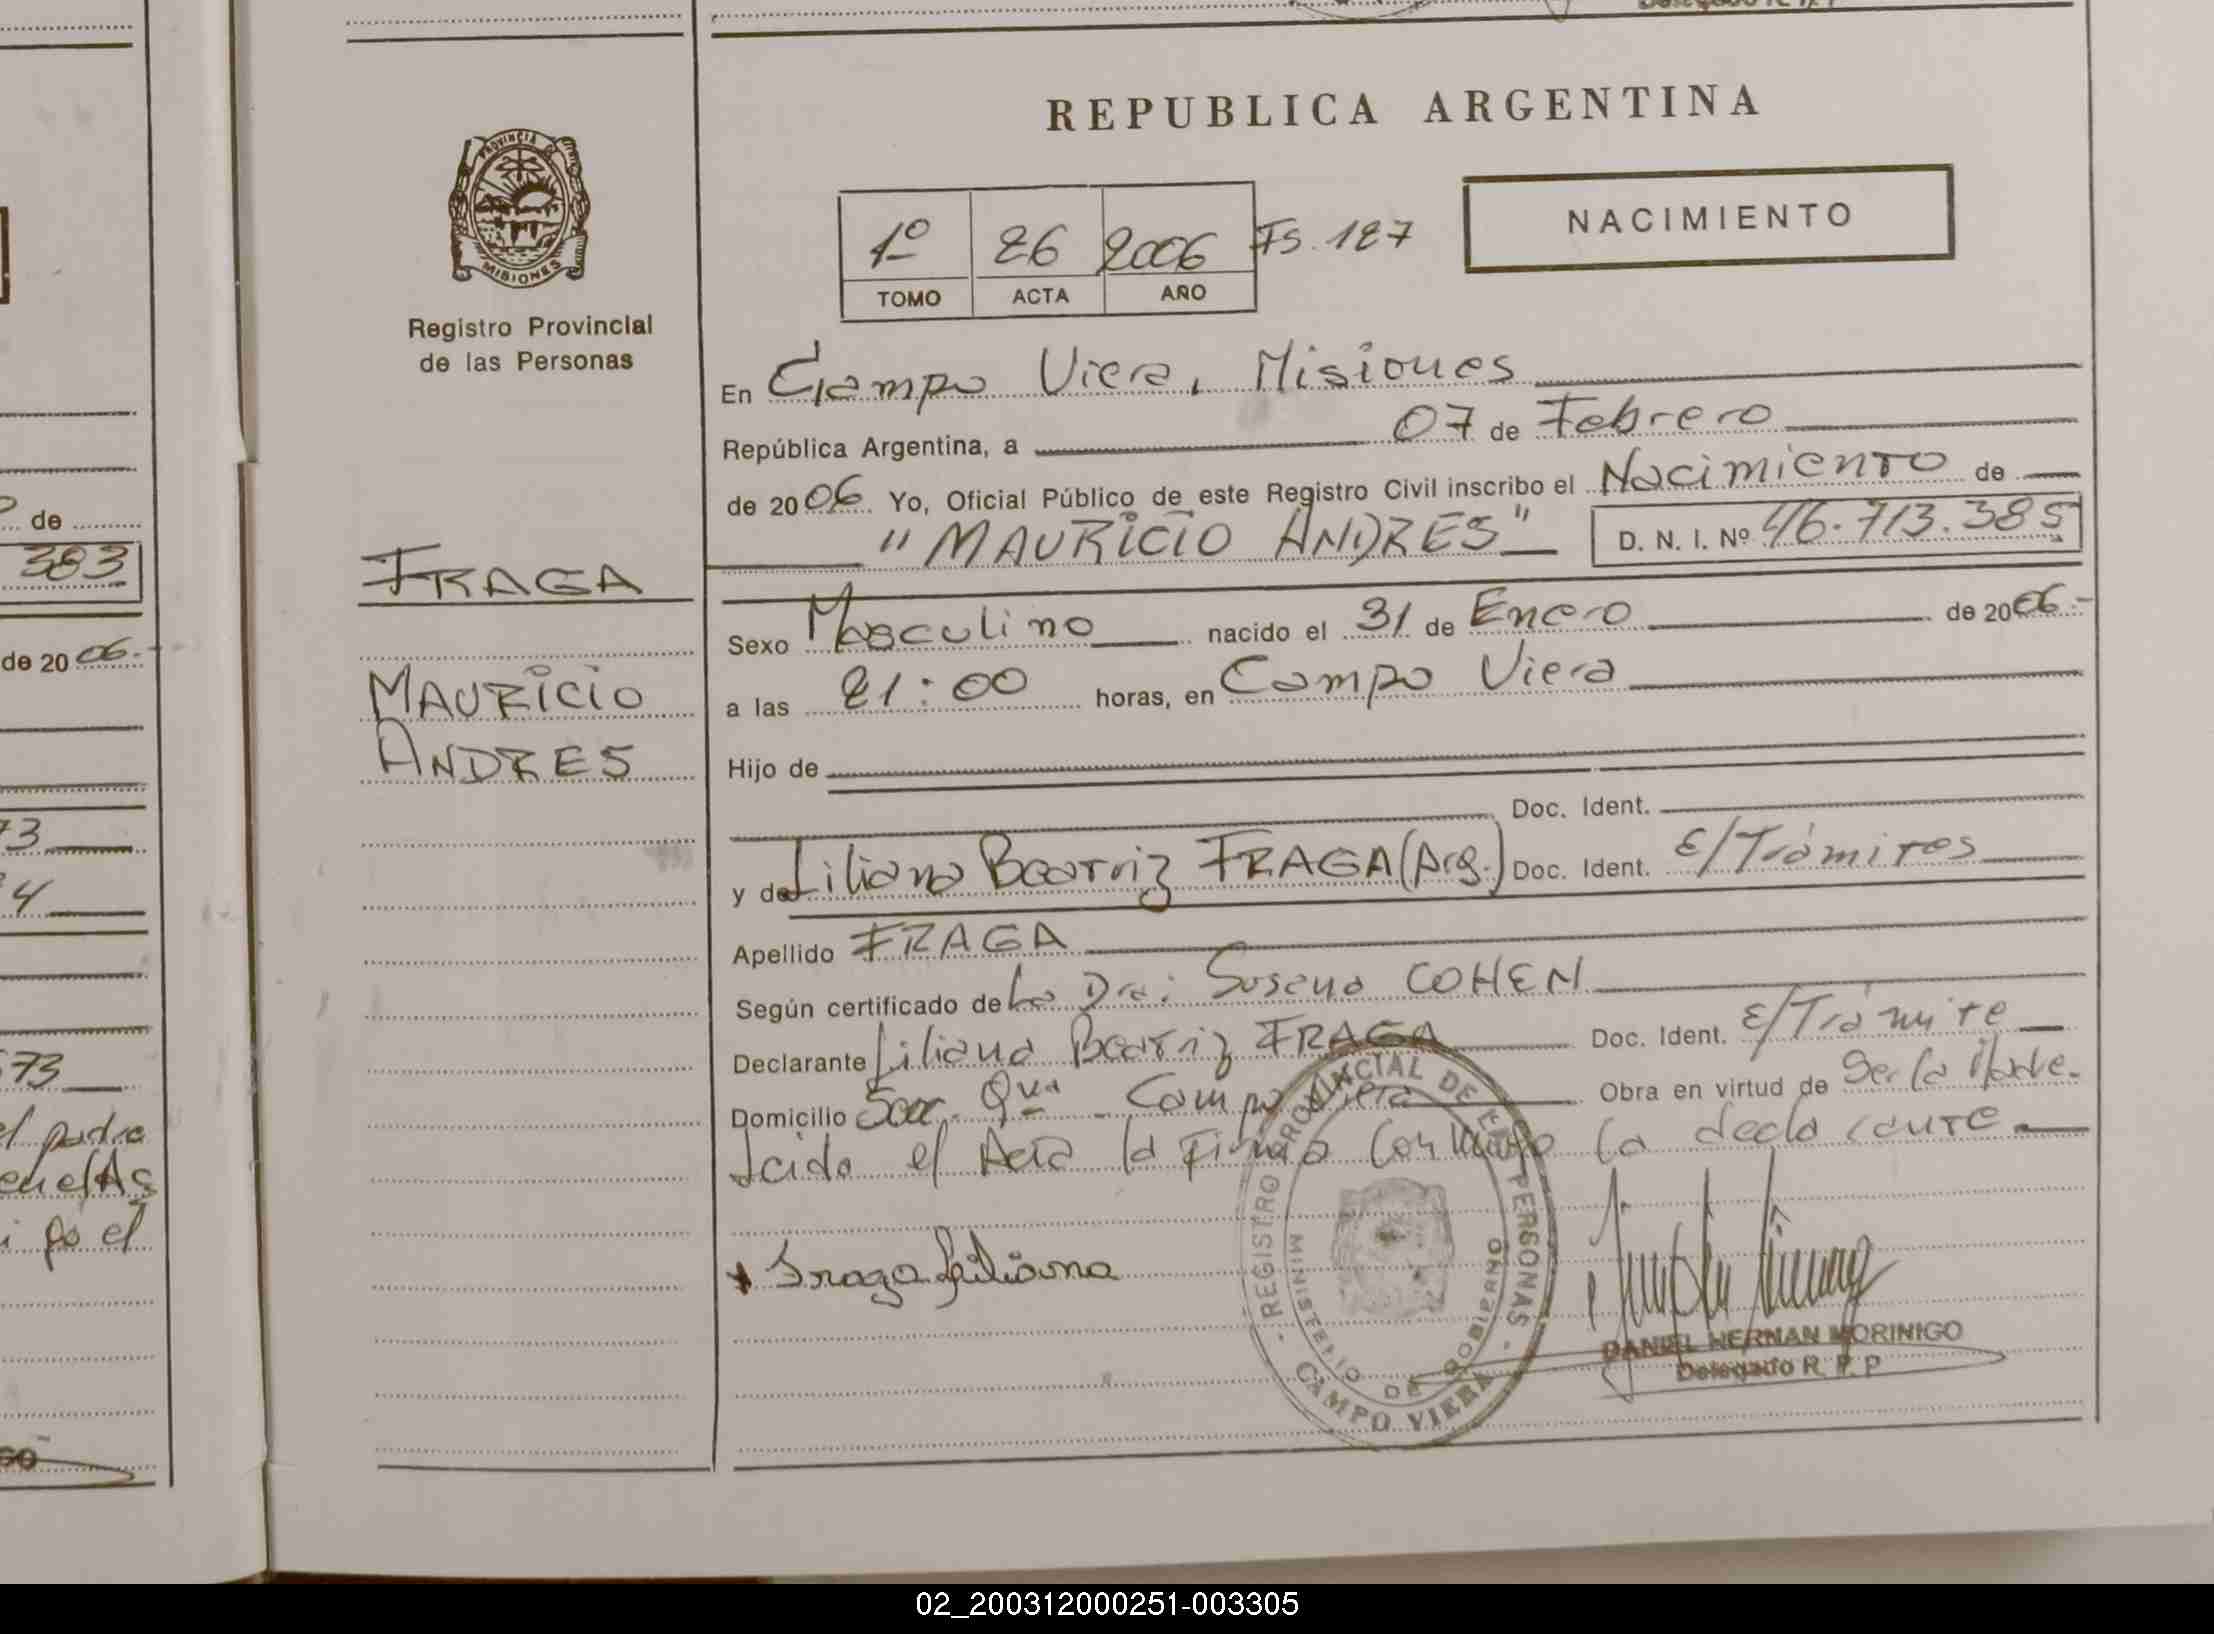 REPUBLICA ARGENTINA
PROVINCIA DE
MISIONES
Registro Provincial
de las Personas
1º 26 2006 Fs. 187
TOMO ACTA AÑO
NACIMIENTO
En Campo Viera, Misiones
República Argentina, a 07 de Febrero
de 2006 Yo, Oficial Público de este Registro Civil inscribo el Nacimiento de
"MAURICIO ANDRES" D. N. I. Nº 46.713.385
FRAGA
MAURICIO
ANDRES
Sexo Masculino nacido el 31 de Enero de 2006.-
a las 21:00 horas, en Campo Viera
Hijo de
Doc. Ident.
y de Liliana Beatriz FRAGA (Arg.) Doc. Ident. E/Trámites
Apellido FRAGA
Según certificado de La Dra: Susana COHEN
Declarante Liliana Beatriz FRAGA Doc. Ident. E/Trámite
Domicilio Qva Campo Viera Obra en virtud de Ser la Madre.
Leida el Acta la Firma Conmigo la declarante
Fraga Liliana
REGISTRO PROVINCIAL DE LAS PERSONAS
MINISTERIO DE GOBIERNO
CAMPO VIERA
DANIEL HERNAN MORINIGO
Delegado R. P. P
de
383
de 2006.-
73
4
73
el padre
02_200312000251-003305